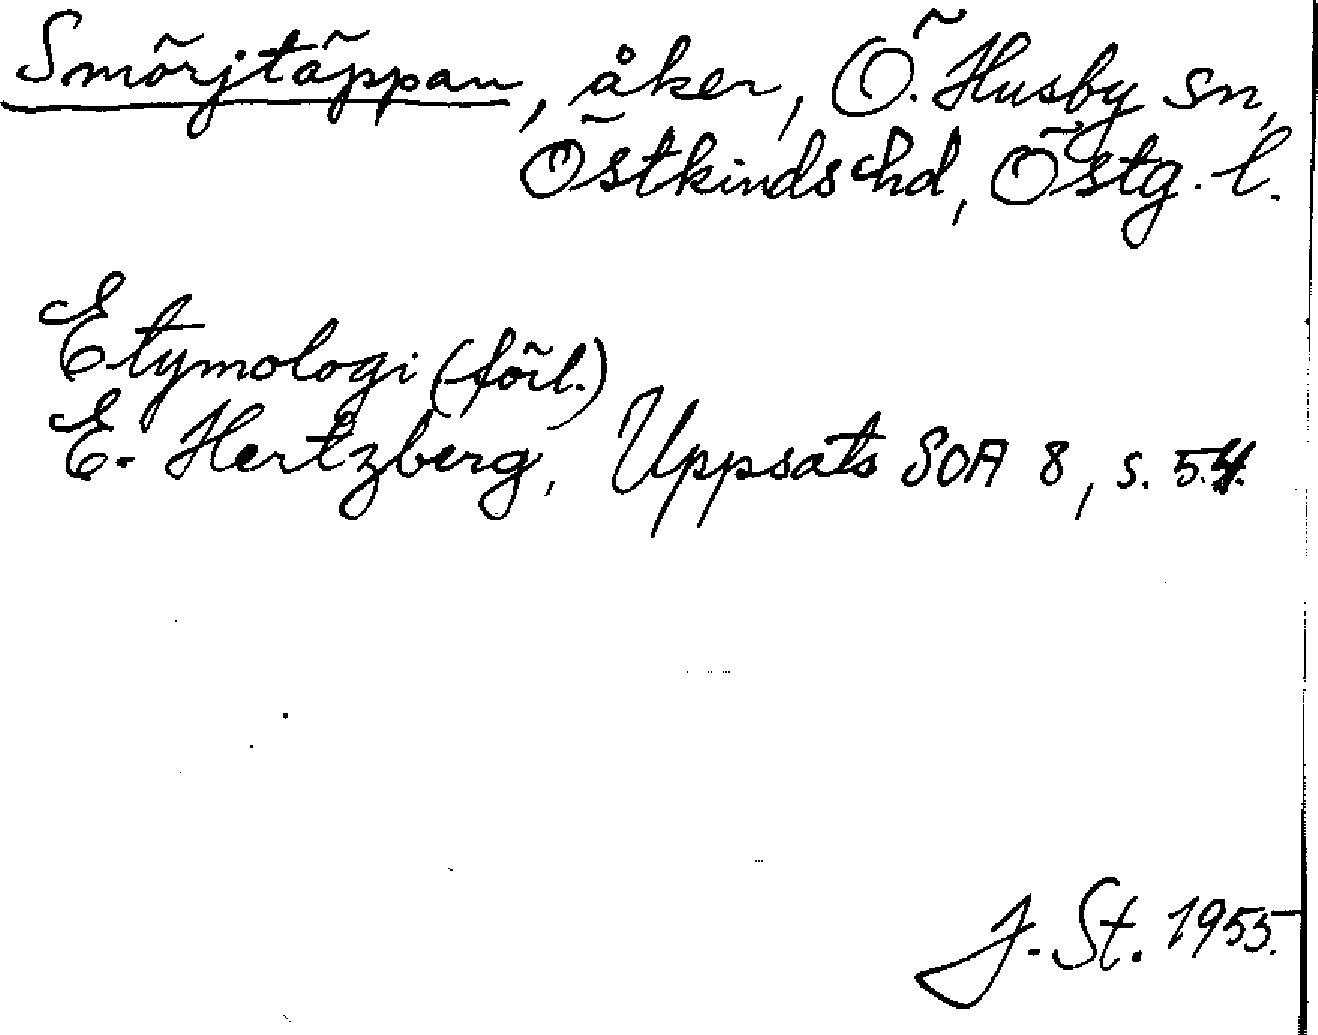 Smörjtäppan, åker, Ö. Husby sn,
Östkinds hd, Östg. l.
Etymologi (förl.)
E. Hertzberg, Uppsats SOA 8, s. 54.
J. St. 1955.